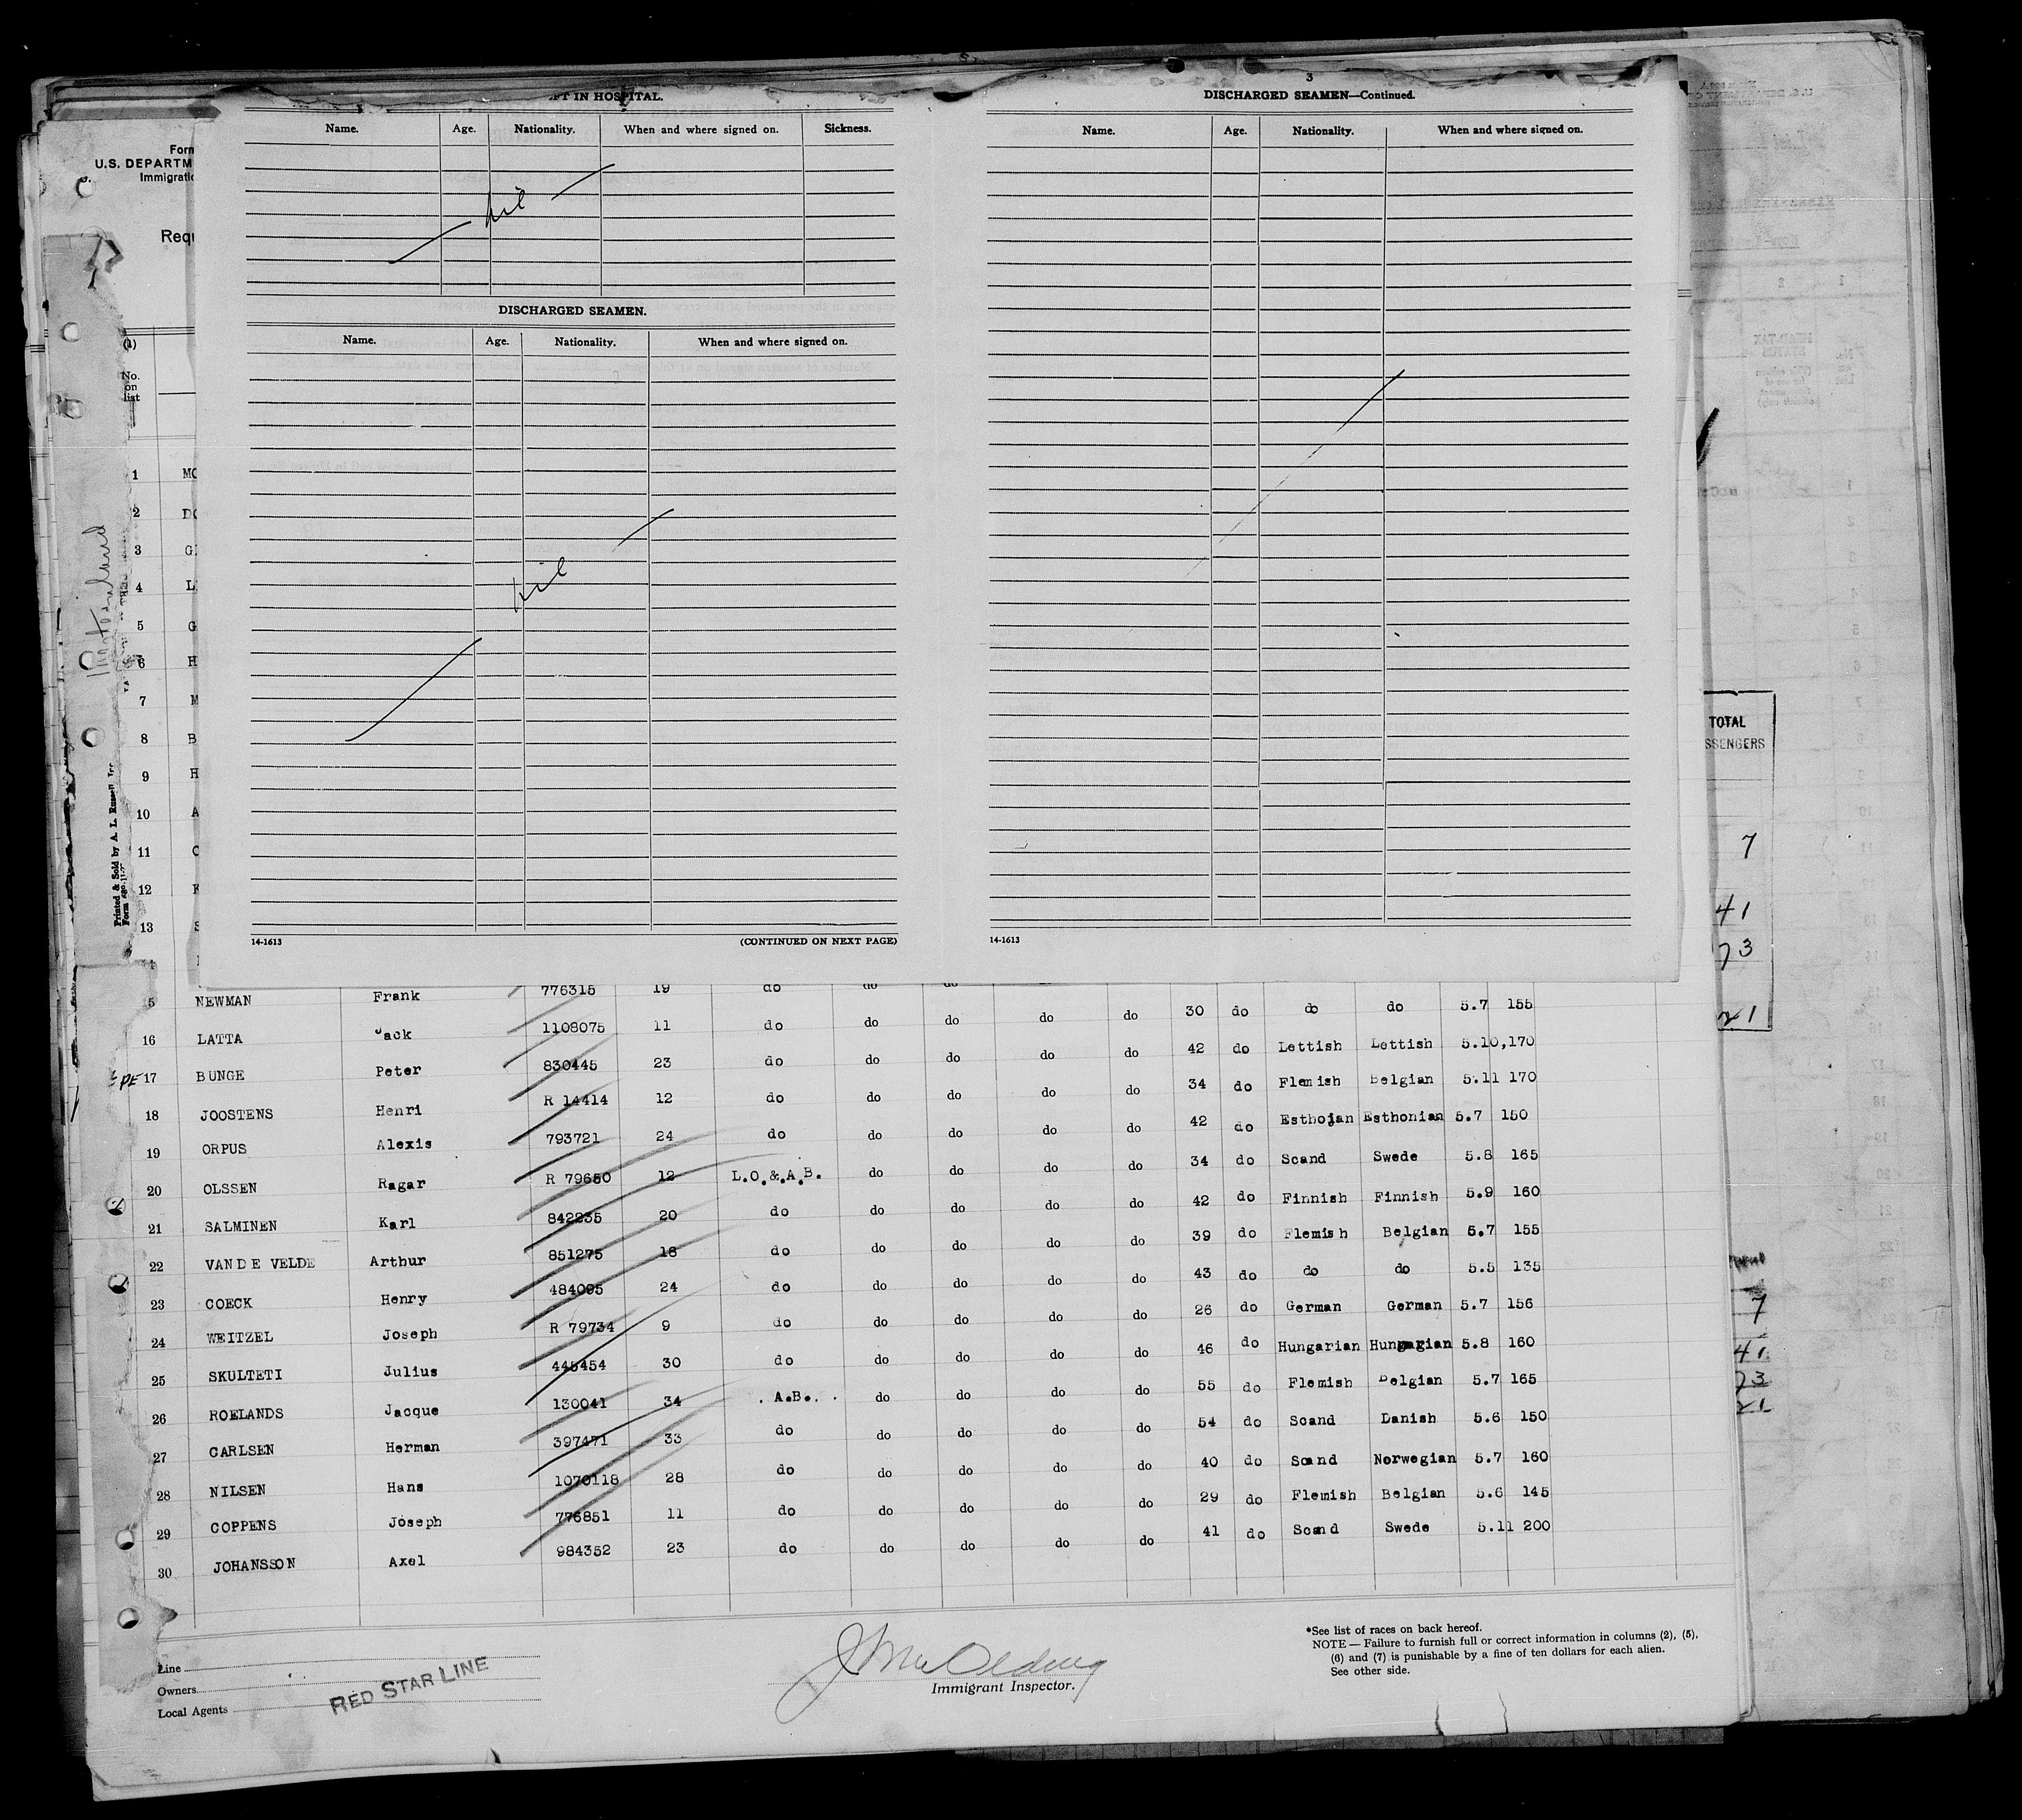 IN HOSPITAL.
Name. Age. Nationality. When and where signed on. Sickness.
nil
DISCHARGED SEAMEN.
Name. Age. Nationality. When and where signed on.
nil
14-1613 (CONTINUED ON NEXT PAGE)
3
DISCHARGED SEAMEN—Continued.
Name. Age. Nationality. When and where signed on.
14-1613
Form
U.S. DEPARTM
Immigratio
Requ
(1)
No. on list
1 MO
2 DO
3 G
4 L
5 G
6 H
7 M
8 B
9 H
10 A
11 C
12 K
13 S
Printed & Sold by A. L. Russell
TOTAL
SSENGERS
7
41
73
21
5 NEWMAN Frank 776315 19 do do do
16 LATTA Jack 1108075 11 do do do do do 30 do do do 5.7 155
17 BUNGE Peter 830445 23 do do do do do 42 do Lettish Lettish 5.10, 170
18 JOOSTENS Henri R 14414 12 do do do do do 34 do Flemish Belgian 5.11 170
19 ORPUS Alexis 793721 24 do do do do do 42 do Esthojan Esthonian 5.7 150
20 OLSSEN Ragar R 79650 12 L.O.&.A.B. do do do do 34 do Scand Swede 5.8 165
21 SALMINEN Karl 842235 20 do do do do do 42 do Finnish Finnish 5.9 160
22 VAN DE VELDE Arthur 851275 18 do do do do do 39 do Flemish Belgian 5.7 155
23 COECK Henry 484095 24 do do do do do 43 do do do 5.5 135
24 WEITZEL Joseph R 79734 9 do do do do do 26 do German German 5.7 156
25 SKULTETI Julius 445454 30 do do do do do 46 do Hungarian Hungarian 5.8 160
26 ROELANDS Jacque 130041 34 . A.B.. . do do do do 55 do Flemish Belgian 5.7 165
27 CARLSEN Herman 397471 33 do do do do do 54 do Scand Danish 5.6 150
28 NILSEN Hans 1070118 28 do do do do do 40 do Scand Norwegian 5.7 160
29 COPPENS Joseph 776851 11 do do do do do 29 do Flemish Belgian 5.6 145
30 JOHANSSON Axel 984352 23 do do do do do 41 do Scand Swede 5.11 200
7
41
73
21
Line
Owners
Local Agents
RED STAR LINE
Immigrant Inspector.
*See list of races on back hereof.
NOTE — Failure to furnish full or correct information in columns (2), (5),
(6) and (7) is punishable by a fine of ten dollars for each alien.
See other side.